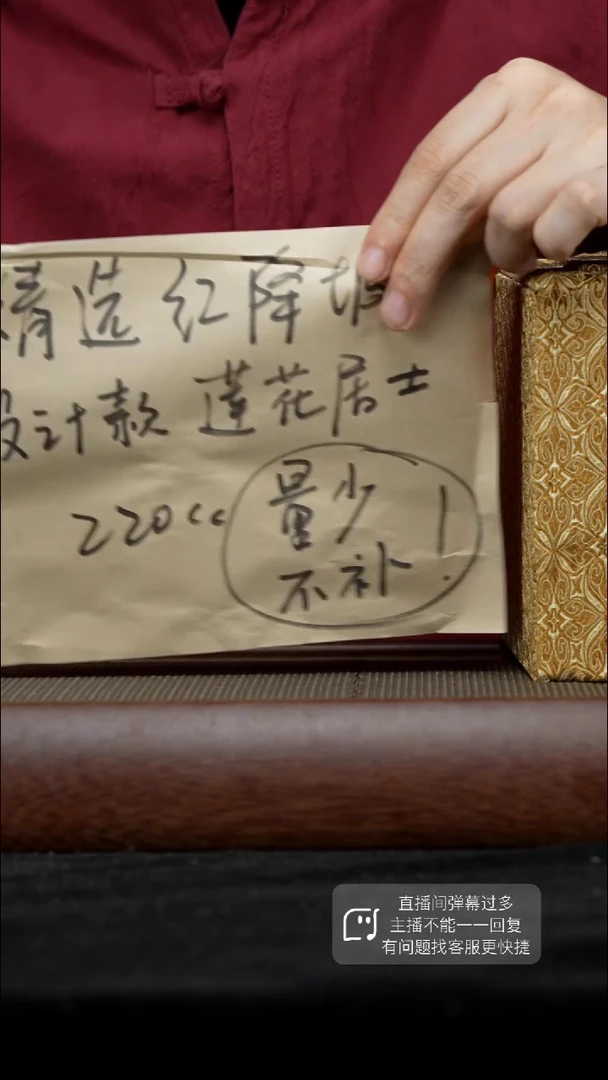 精选红降坡
设计款 莲花居士
220cc
量少！
不补
直播间弹幕过多
主播不能一一回复
有问题找客服更快捷